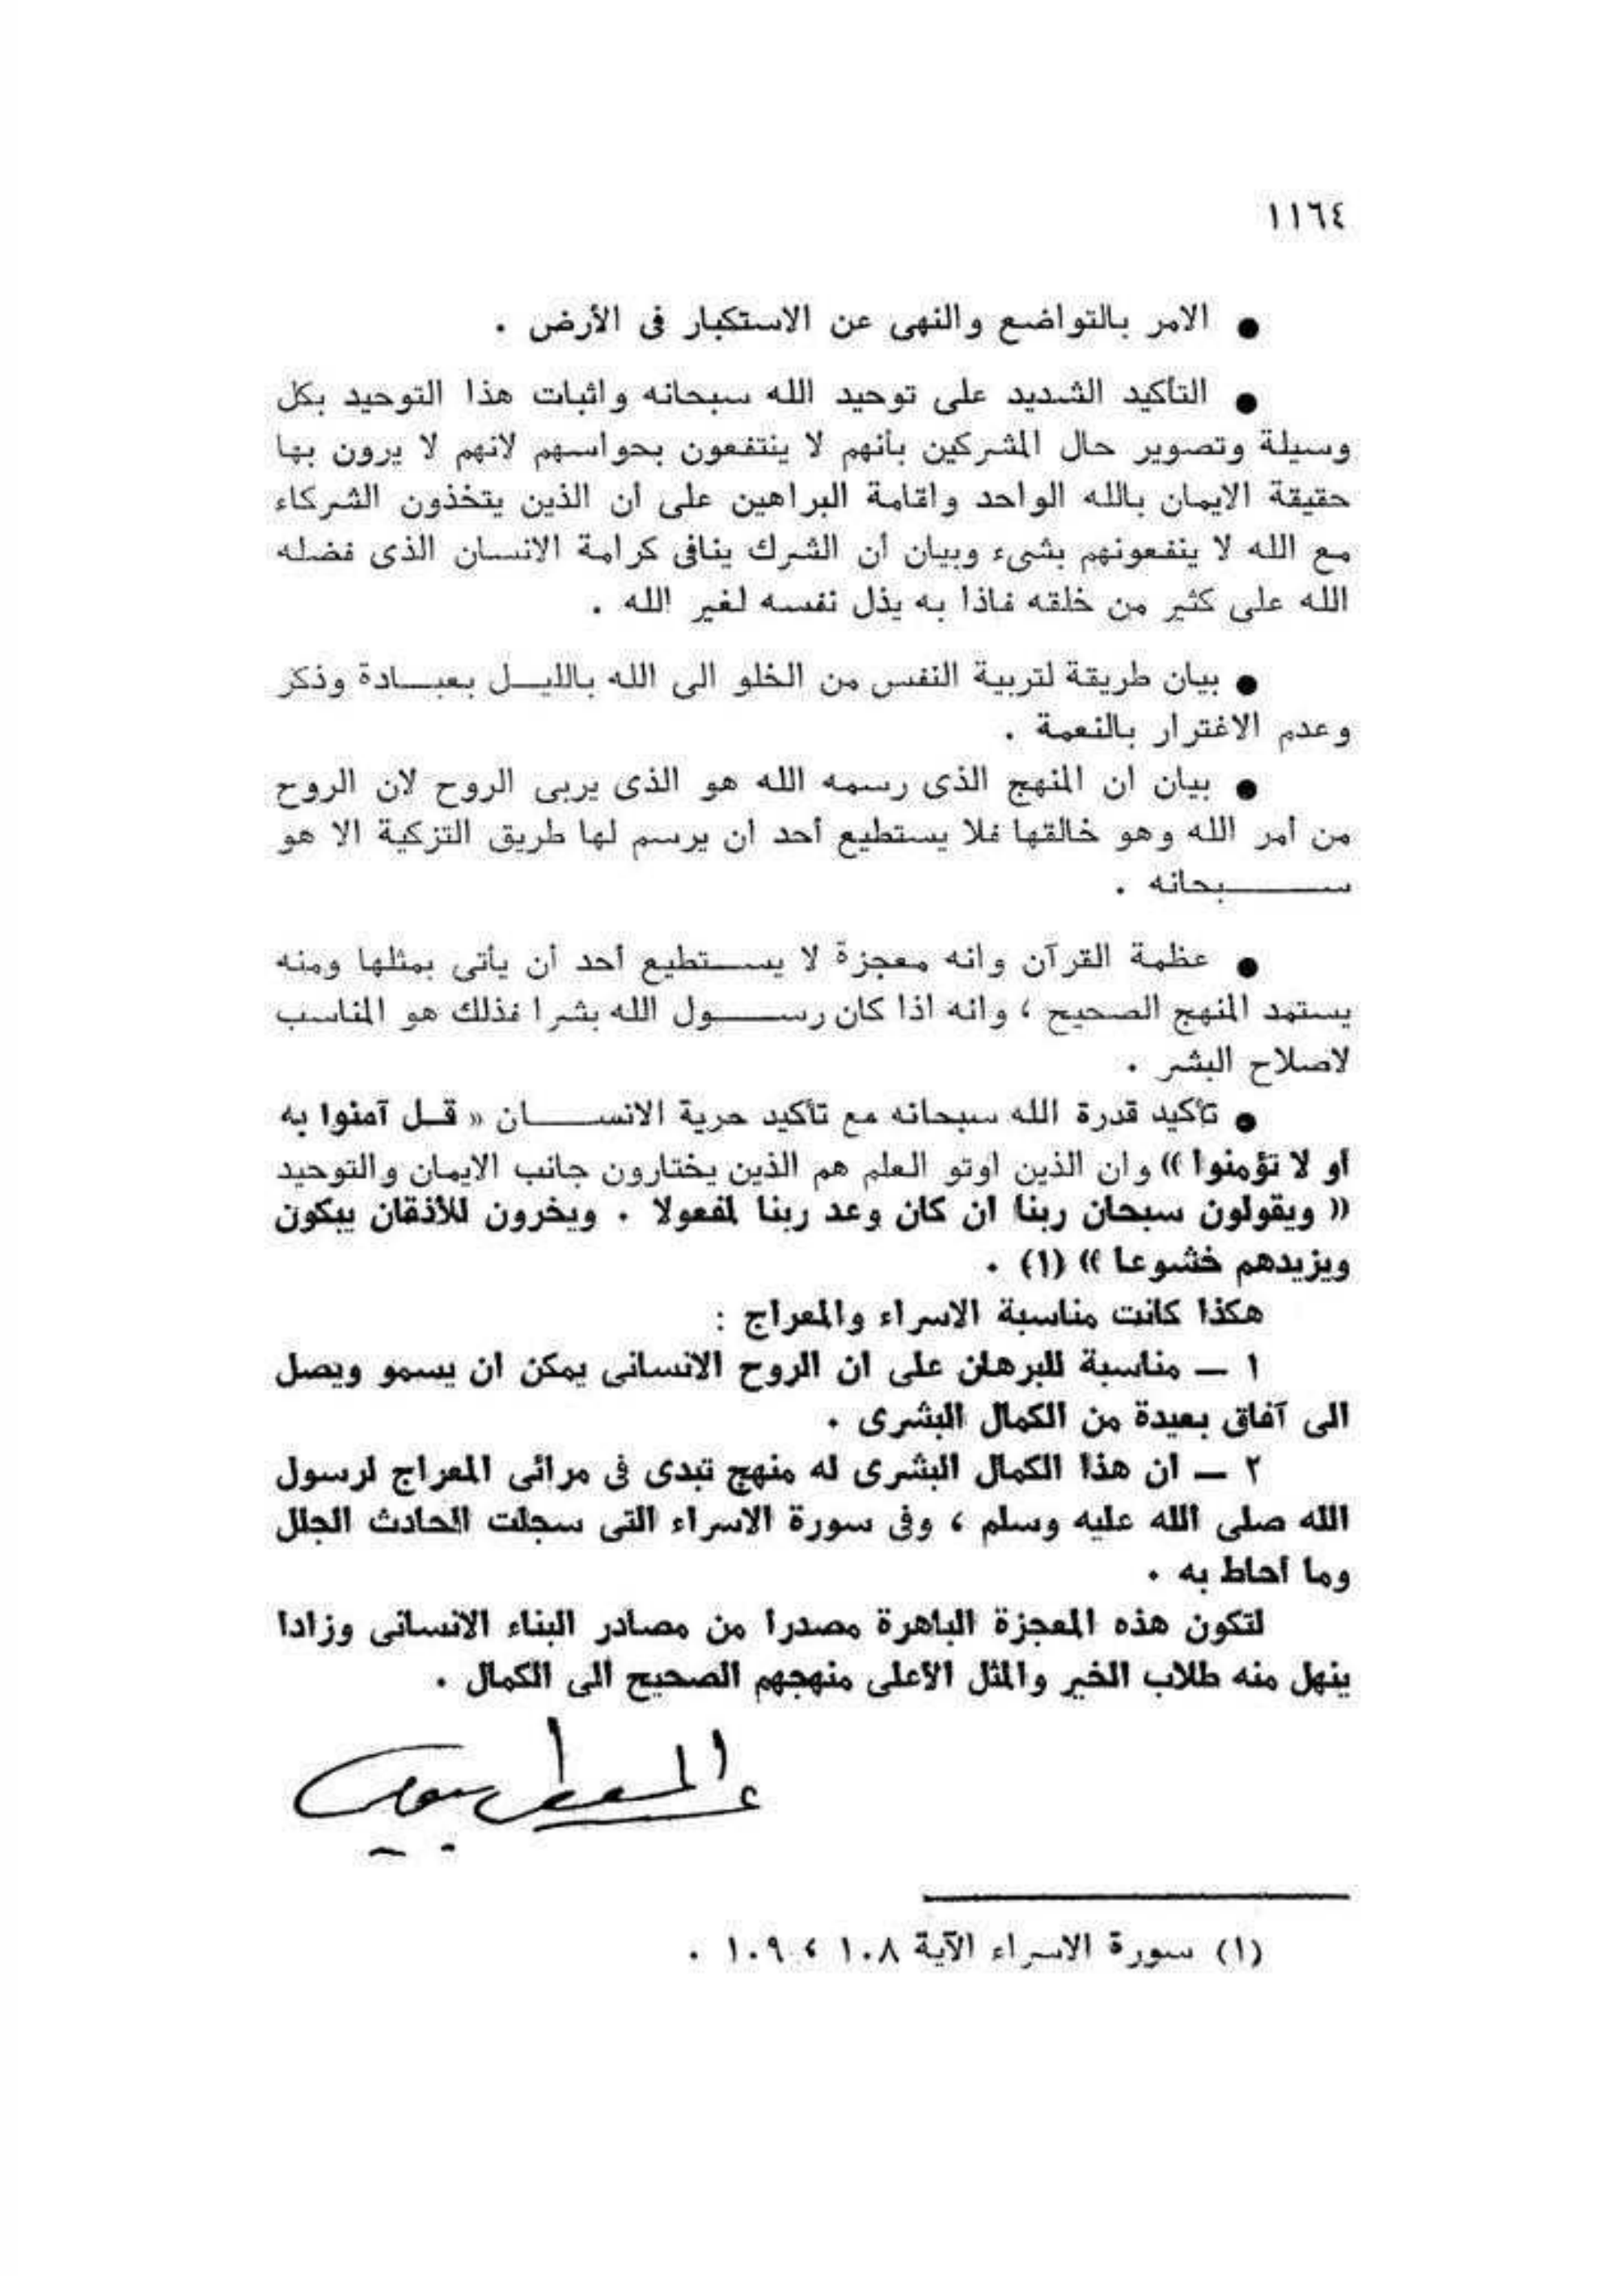 ١١٦٤
● الامر بالتواضع والنهى عن الاستكبار فى الأرض .
● التأكيد الشديد على توحيد الله سبحانه واثبات هذا التوحيد بكل
وسيلة وتصوير حال المشركين بأنهم لا ينتفعون بحواسهم لانهم لا يرون بها
حقيقة الايمان بالله الواحد واقامة البراهين على ان الذين يتخذون الشركاء
مع الله لا ينفعونهم بشىء وبيان أن الشرك ينافى كرامة الانسان الذى فضله
الله على كثير من خلقه فاذا به يذل نفسه لغير الله .
● بيان طريقة لتربية النفس من الخلو الى الله بالليل بعبادة وذكر
وعدم الاغترار بالنعمة .
● بيان ان المنهج الذى رسمه الله هو الذى يربى الروح لان الروح
من أمر الله وهو خالقها فلا يستطيع أحد ان يرسم لها طريق التزكية الا هو
سبحانه .
● عظمة القرآن وانه معجزة لا يستطيع أحد أن يأتى بمثلها ومنه
يستمد المنهج الصحيح ، وانه اذا كان رسول الله بشرا فذلك هو المناسب
لاصلاح البشر .
● تأكيد قدرة الله سبحانه مع تأكيد حرية الانسان « قل آمنوا به
أو لا تؤمنوا » وان الذين اوتو العلم هم الذين يختارون جانب الايمان والتوحيد
« ويقولون سبحان ربنا ان كان وعد ربنا لمفعولا . ويخرون للأذقان يبكون
ويزيدهم خشوعا » (١) .
هكذا كانت مناسبة الاسراء والمعراج :
١ ـ مناسبة للبرهان على ان الروح الانسانى يمكن ان يسمو ويصل
الى آفاق بعيدة من الكمال البشرى .
٢ ـ ان هذا الكمال البشرى له منهج تبدى فى مرائى المعراج لرسول
الله صلى الله عليه وسلم ، وفى سورة الاسراء التى سجلت الحادث الجلل
وما أحاط به .
لتكون هذه المعجزة الباهرة مصدرا من مصادر البناء الانسانى وزادا
ينهل منه طلاب الخير والمثل الأعلى منهجهم الصحيح الى الكمال .
(١) سورة الاسراء الآية ١٠٨ ، ١٠٩ .